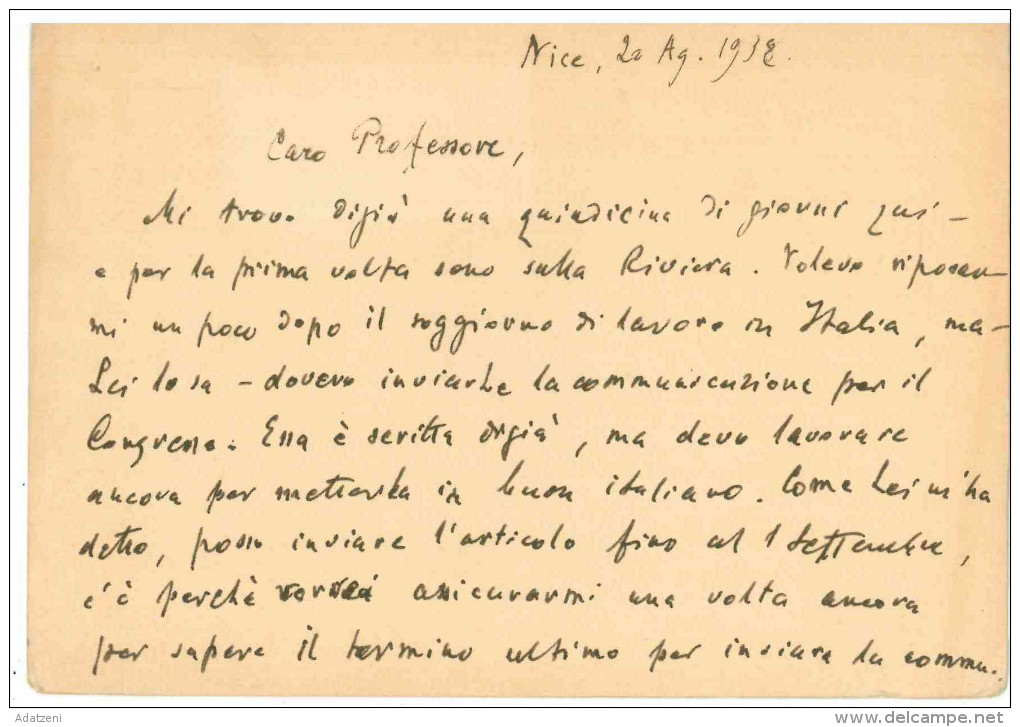 Nice, 20 Ag. 1932.
Caro Professore,
Mi trovo digià una quindicina di giorni qui -
e per la prima volta sono sulla Riviera. Volevo riposar-
mi un poco dopo il soggiorno di lavoro in Italia, ma -
Lei lo sa - dovevo inviarLe la communicazione per il
Congresso. Essa è scritta digià, ma devo lavorare
ancora per metterla in buon italiano. Come Lei m'ha
detto, posso inviare l'articolo fino al 1 Settembre,
c'è perchè vorrei assicurarmi una volta ancora
per sapere il termino ultimo per inviare la commu-
Adatzeni
http://www.delcampe.net